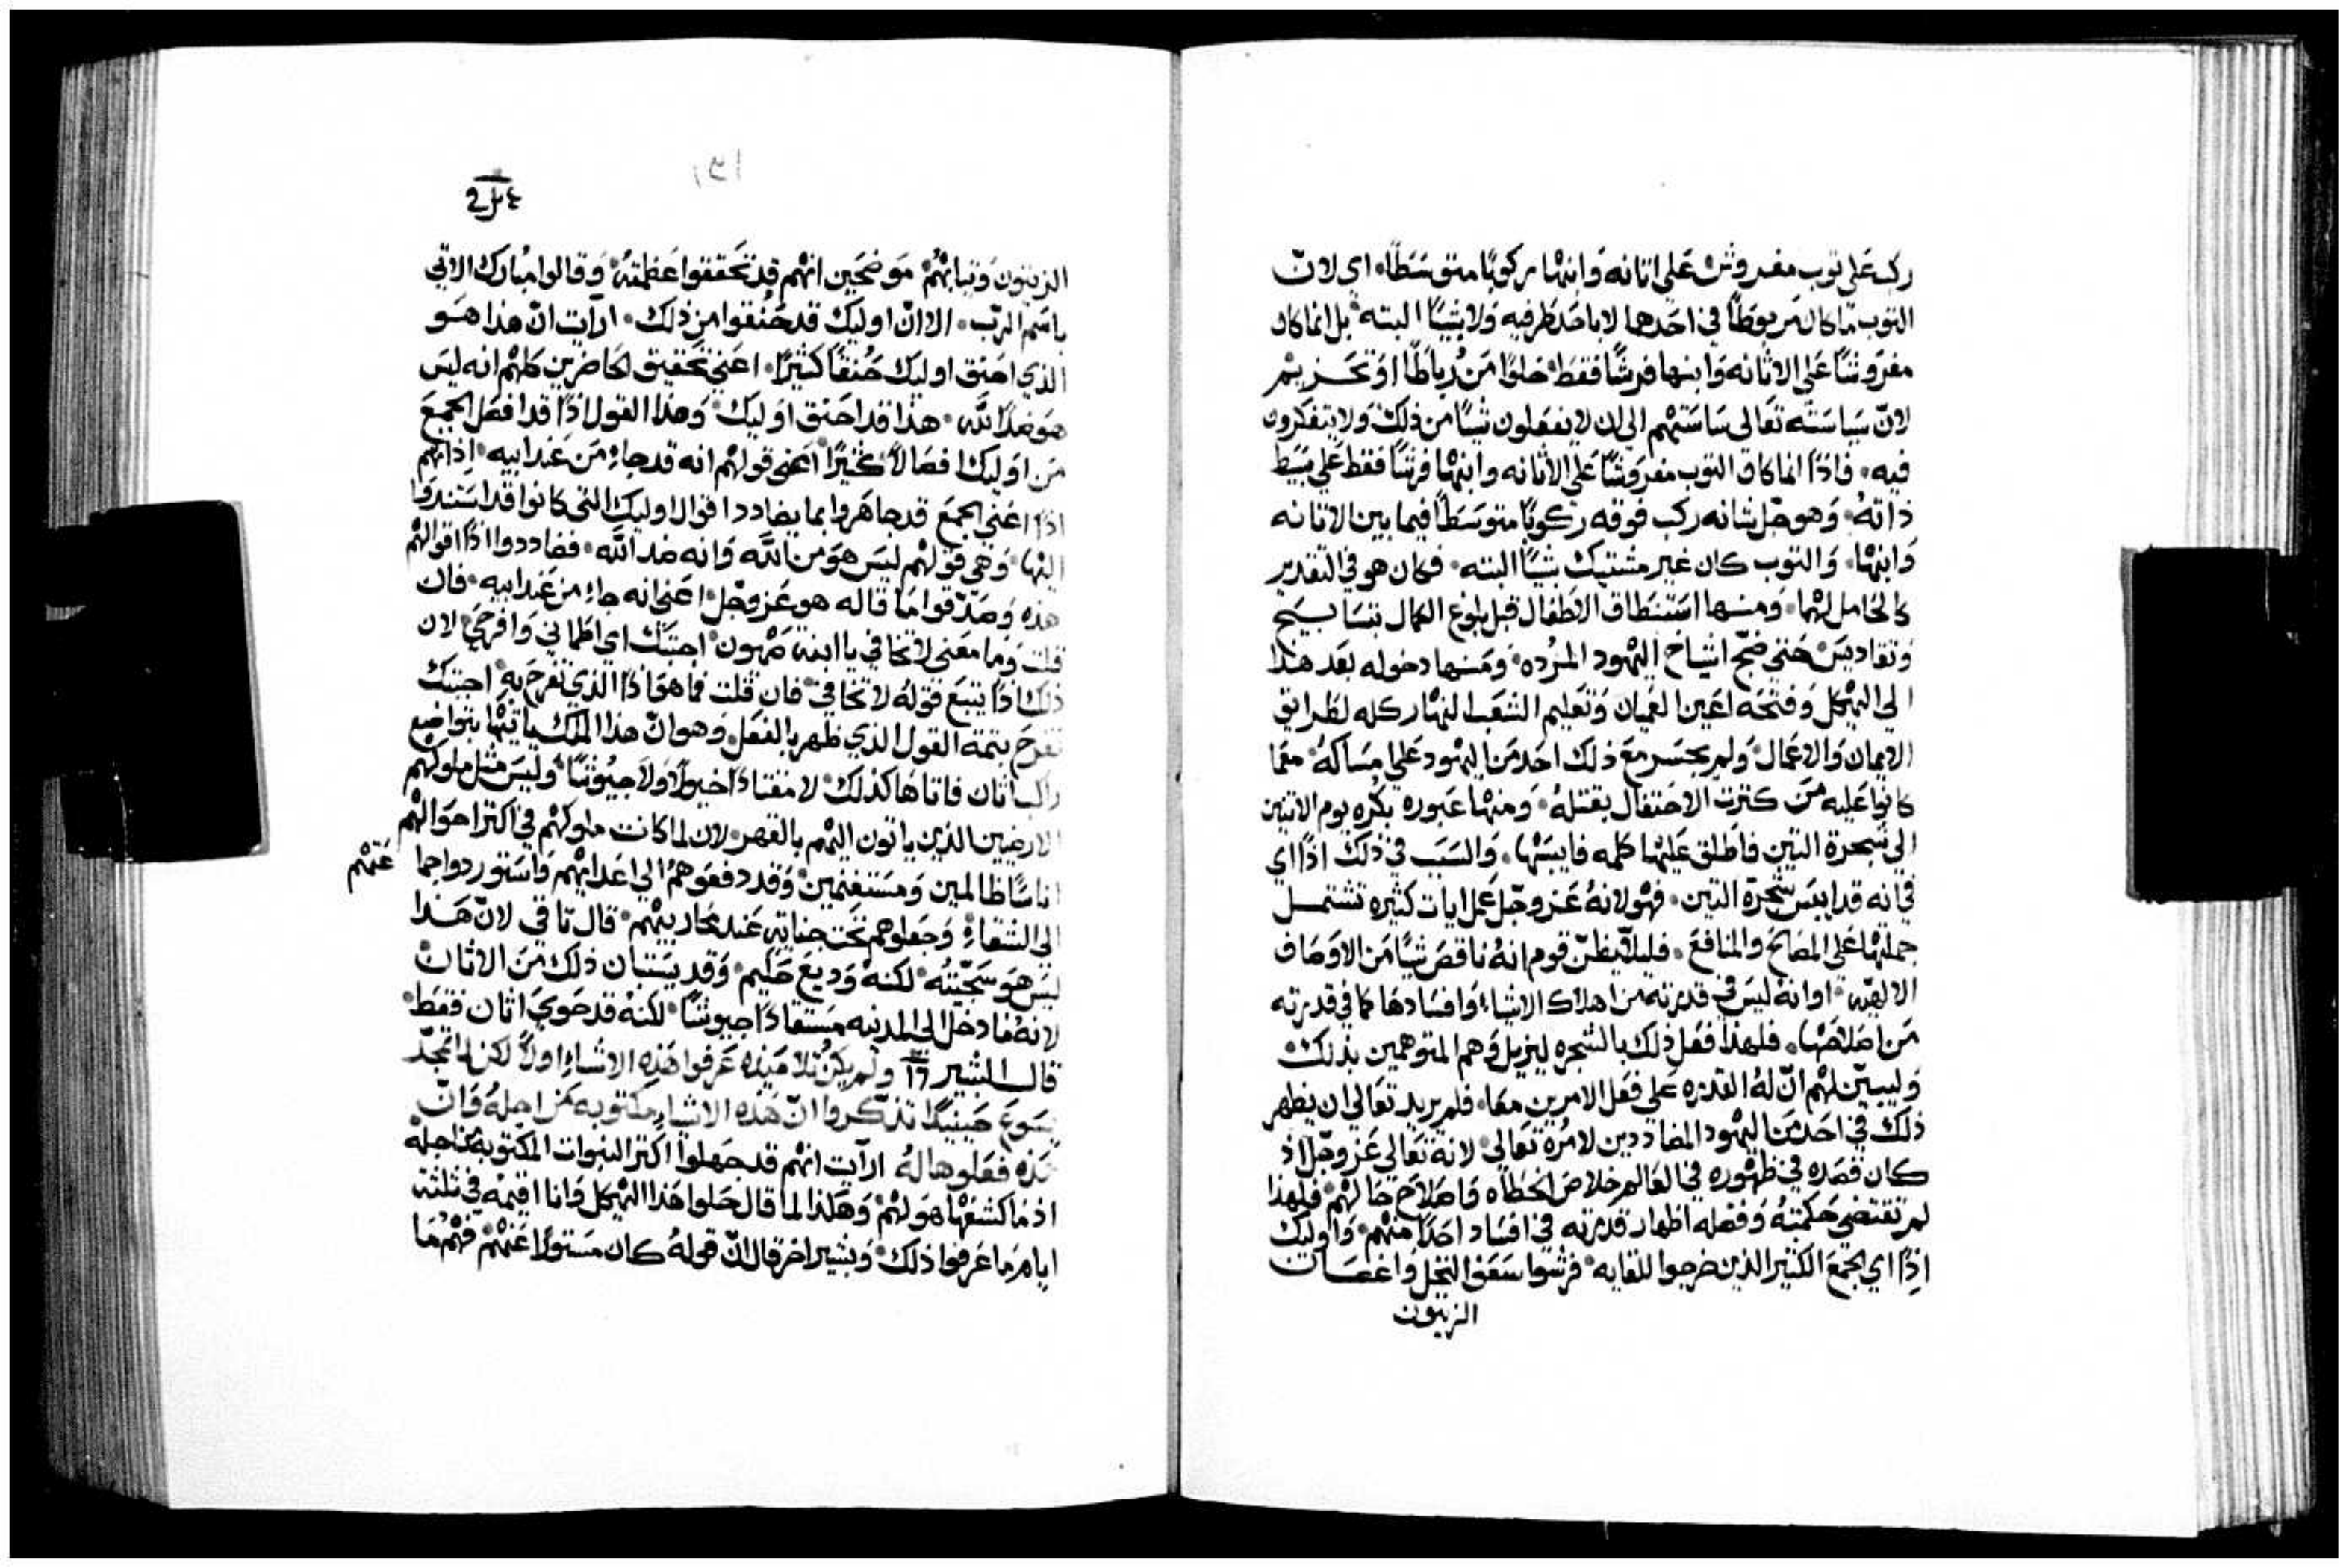 ركب على توب مفروش على اتانه وابنها ركوبًا متوسطًا، اي لان
التوب ما كان مربوطًا في احدها لا باحد طرفيه ولا بشيًا البته، بل انما كان
مفروشًا على الاتانه وابنها فرشًا فقط خلوًا من رباطًا او تحزيم
لان سياسته تعالى ساستهم الى ان لا يفعلون شيًا من ذلك ولا يتفكرون
فيه، فاذًا انما كان التوب مفروشًا على الاتانه وابنها فرشًا فقط على بسيط
ذاته، وهو جل شانه ركب فوقه ركوبًا متوسطًا فيما بين الاتانه
وابنها، والتوب كان غير مشتبك بشيًا البته، فكان هو في التقدير
كالحامل لهما، ومنها استنطاق الاطفال قبل بلوغ الكمال بتسابيح
وتقاديس حتى ضج اشياخ اليهود المرده، ومنها دخوله بعد هذا
الى الهيكل وفتحه اعين العميان وتعليم الشعب النهار كله لطرايق
الايمان والاعمال، ولم يجسر مع ذلك احد من اليهود على مساكه، معما
كانوا عليه من كترت الاحتفال بقتله، ومنها عبوره بكره يوم الاتنين
الى شجرة التين فاطلق عليها كلمه فايبسها، والسبب في ذلك اذًا اي
في انه قد ايبس شجرة التين، فهو لانه عز وجل عمل ايات كثيره تشتمل
جملتها على المصالح والمنافع، فليلا يظن قوم انه ناقص شيًا من الاوصاف
الالهيه، او انه ليس في قدرته من اهلاك الاشياء وافسادها كما في قدرته
من اصلاحها، فلهذا فعل ذلك بالشجره ليزيل وهم المتوهمين بذلك
وليبين لهم ان له القدره على فعل الامرين معا، فلم يريد تعالى ان يظهر
ذلك في احد من اليهود المضاددين لامره تعالى، لانه تعالى عز وجل اذ
كان قصده في ظهوره في العالم خلاص الخطاه واصلاح حالهم، فلهذا
لم تقتضي حكمته وفضله اظهار قدرته في افساد احدًا منهم، واوليك
اذًا اي الجمع الكثير الذين خرجوا للقايه، فرشوا سعف النخل واغصان
الزيتون
١٣١
الزيتون وتيابهم، موضحين انهم قد تحققوا عظمته، وقالوا مبارك الاتي
باسم الرب، الا ان اوليك قد حنقوا من ذلك، ارآيت ان هذا هو
الذي احنق اوليك حنقًا كثيرًا، اعني تحقيق الحاضرين كلهم انه ليس
هو ضدًا لله، هذا قد احنق اوليك، وهذا القول اذًا قد افصل الجمع
من اوليك افصالًا كثيرًا، اعني قولهم انه قد جاء من عند ابيه، اذ انهم
اذًا اعني الجمع قد جاهروا بما يضادد اقوال اوليك التي كانوا قد استندوا
اليها، وهي قولهم ليس هو من الله وانه ضد الله، فضاددوا اذًا اقوالهم
هذه وصدقوا ما قاله هو عز وجل، اعني انه جاء من عند ابيه، فان
قلت وما معنى لا تخافي يا ابنة صهون، اجبتك اي اطماني وافرحي، لان
ذلك اذًا يتبع قوله لا تخافي، فان قلت فما هو اذًا الذي تفرح به، اجبتك
تفرح بتمة القول الذي ظهر بالفعل، وهو ان هذا الملك ياتيها بتواضع
راكب اتان فاتاها كذلك، لا مقتادًا خيولًا ولا جيوشًا، وليس مثل ملوكهم
الارضيين الذين ياتون اليهم بالقهر، لان لما كانت ملوكهم في اكتر احوالهم
اناسًا ظالمين ومستغنمين، وقد دفعوهم الى اعدايهم واستوردوا جما عتهم
الى الشقاء، وجعلوهم تحت جناية عند محاربيهم، قال تاقي، لان هذا
ليس هو سجيته، لكنه وديع حليم، وقد يستبان ذلك من الاتان
لانه ما دخل الى المدنيه مستقادًا جيوشًا، لكنه قد حوى اتان فقط،
قال البشير ١٦ ولم يكن تلاميذه عرفوا هذه الاشياء اولًا لكن لما تمجد
يسوع حينيذًا تذكروا ان هذه الاشياء مكتوبه من اجله وان
هذه فعلوها له، ارآيت انهم قد جهلوا اكتر النبوات المكتوبه من اجله
اذ ما كشفها هو لهم، وهكذا لما قال حلوا هذا الهيكل وانا اقيمه في ثلثة
ايام ما عرفوا ذلك، وبشير اخر قال ان قوله كان مستورًا عنهم فهم ما